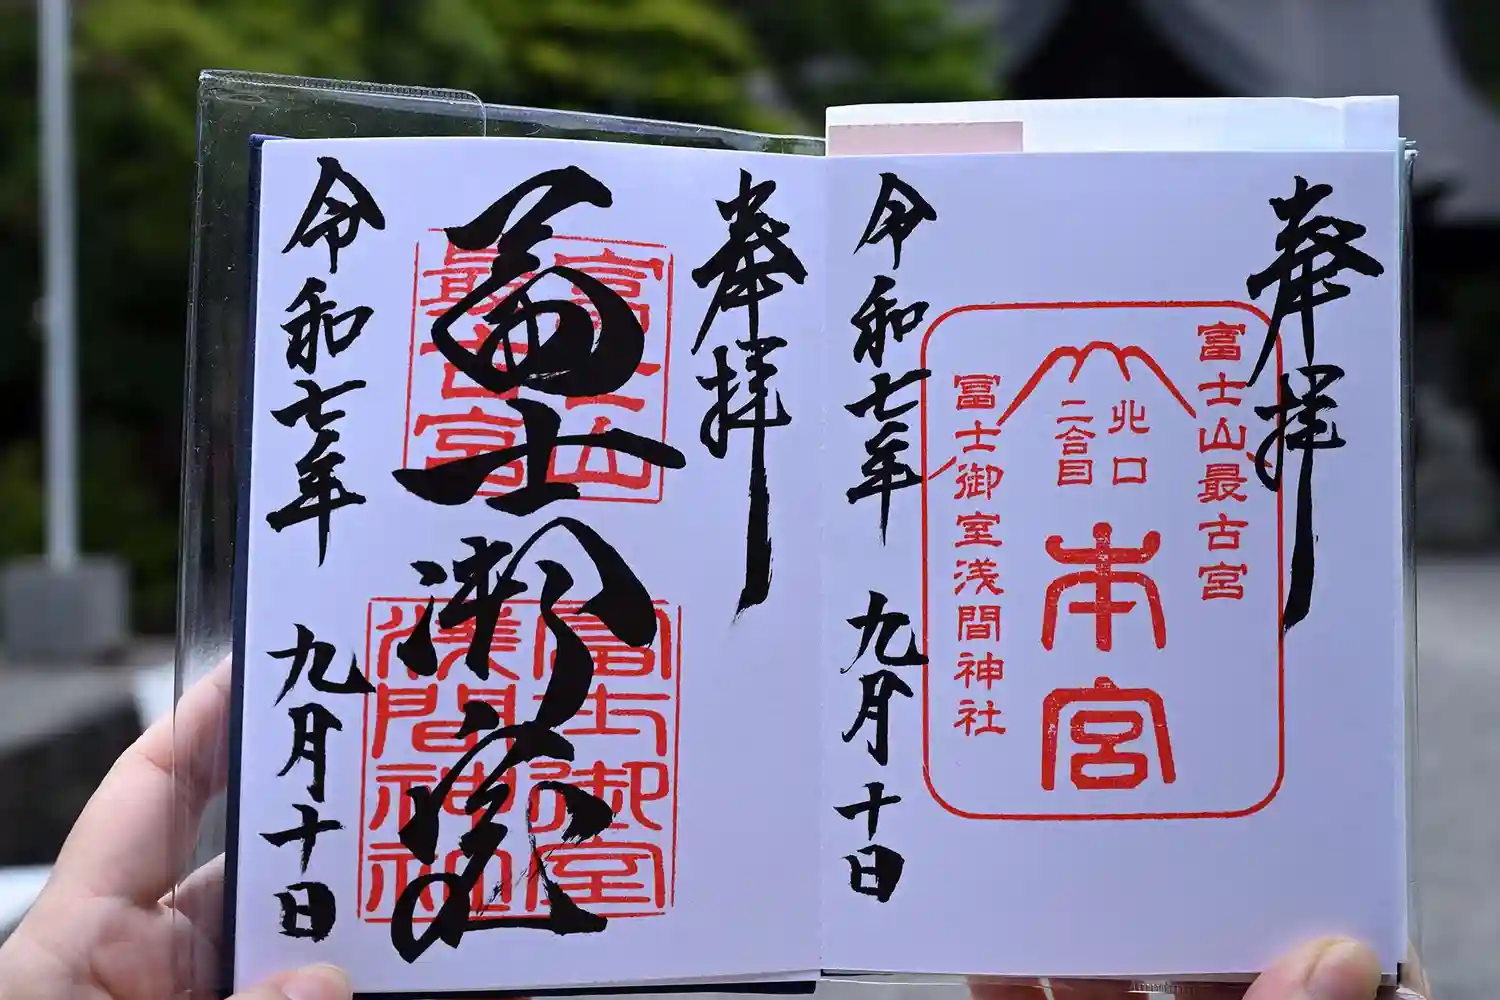 奉拝
富士山最古宮
北口
二合目
本宮
富士御室浅間神社
令和七年 九月十日
奉拝
富士山
最古宮
富士
富士御室
浅間神社
令和七年 九月十日